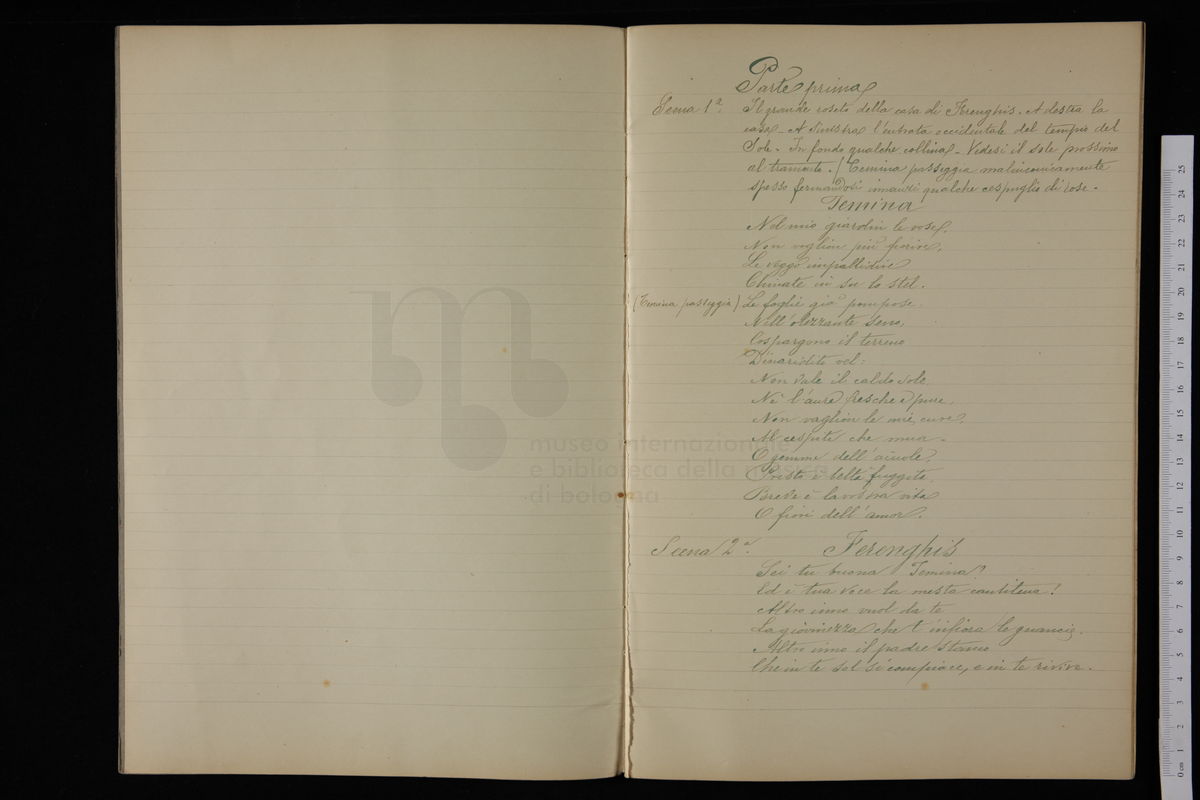 Parte prima
Scena 1ª. Il grande roseto della casa di Ferenghis. A destra la
casa - A Sinistra l'entrata occidentale del tempio del
Sole. In fondo qualche collina - Vedesi il sole prossimo
al tramonto. (Temina passeggia malinconicamente
spesso fermandosi innanzi qualche cespuglio di rose.
Temina
Nel mio giardin le rose,
Non voglion più fiorire,
Le veggo impallidire
Chinate in su lo stel.
(Temina passeggia) Le foglie già pompose
Nell'olezzante seno,
Cospargono il terreno
Non vale il caldo sole,
Nè l'aure fresche e pure,
Non vaglion le mie cure,
Al cespite che muor.
O gemme dell'aiuole,
Presto è beltà fuggita,
Breve è la vita
O fiori dell'amor.
Scena 2ª. Ferenghis
Sei tu buona Temina?
Ed è tua voce la mesta cantilena!
Altro inno vuol da te
La giovinezza che t'infiora le guancie.
Altro inno il padre stanco
Che in te sol si compiace, e in te rivive.
museo internazionale
e biblioteca della musica
di bologna
0 cm 1 2 3 4 5 6 7 8 9 10 11 12 13 14 15 16 17 18 19 20 21 22 23 24 25